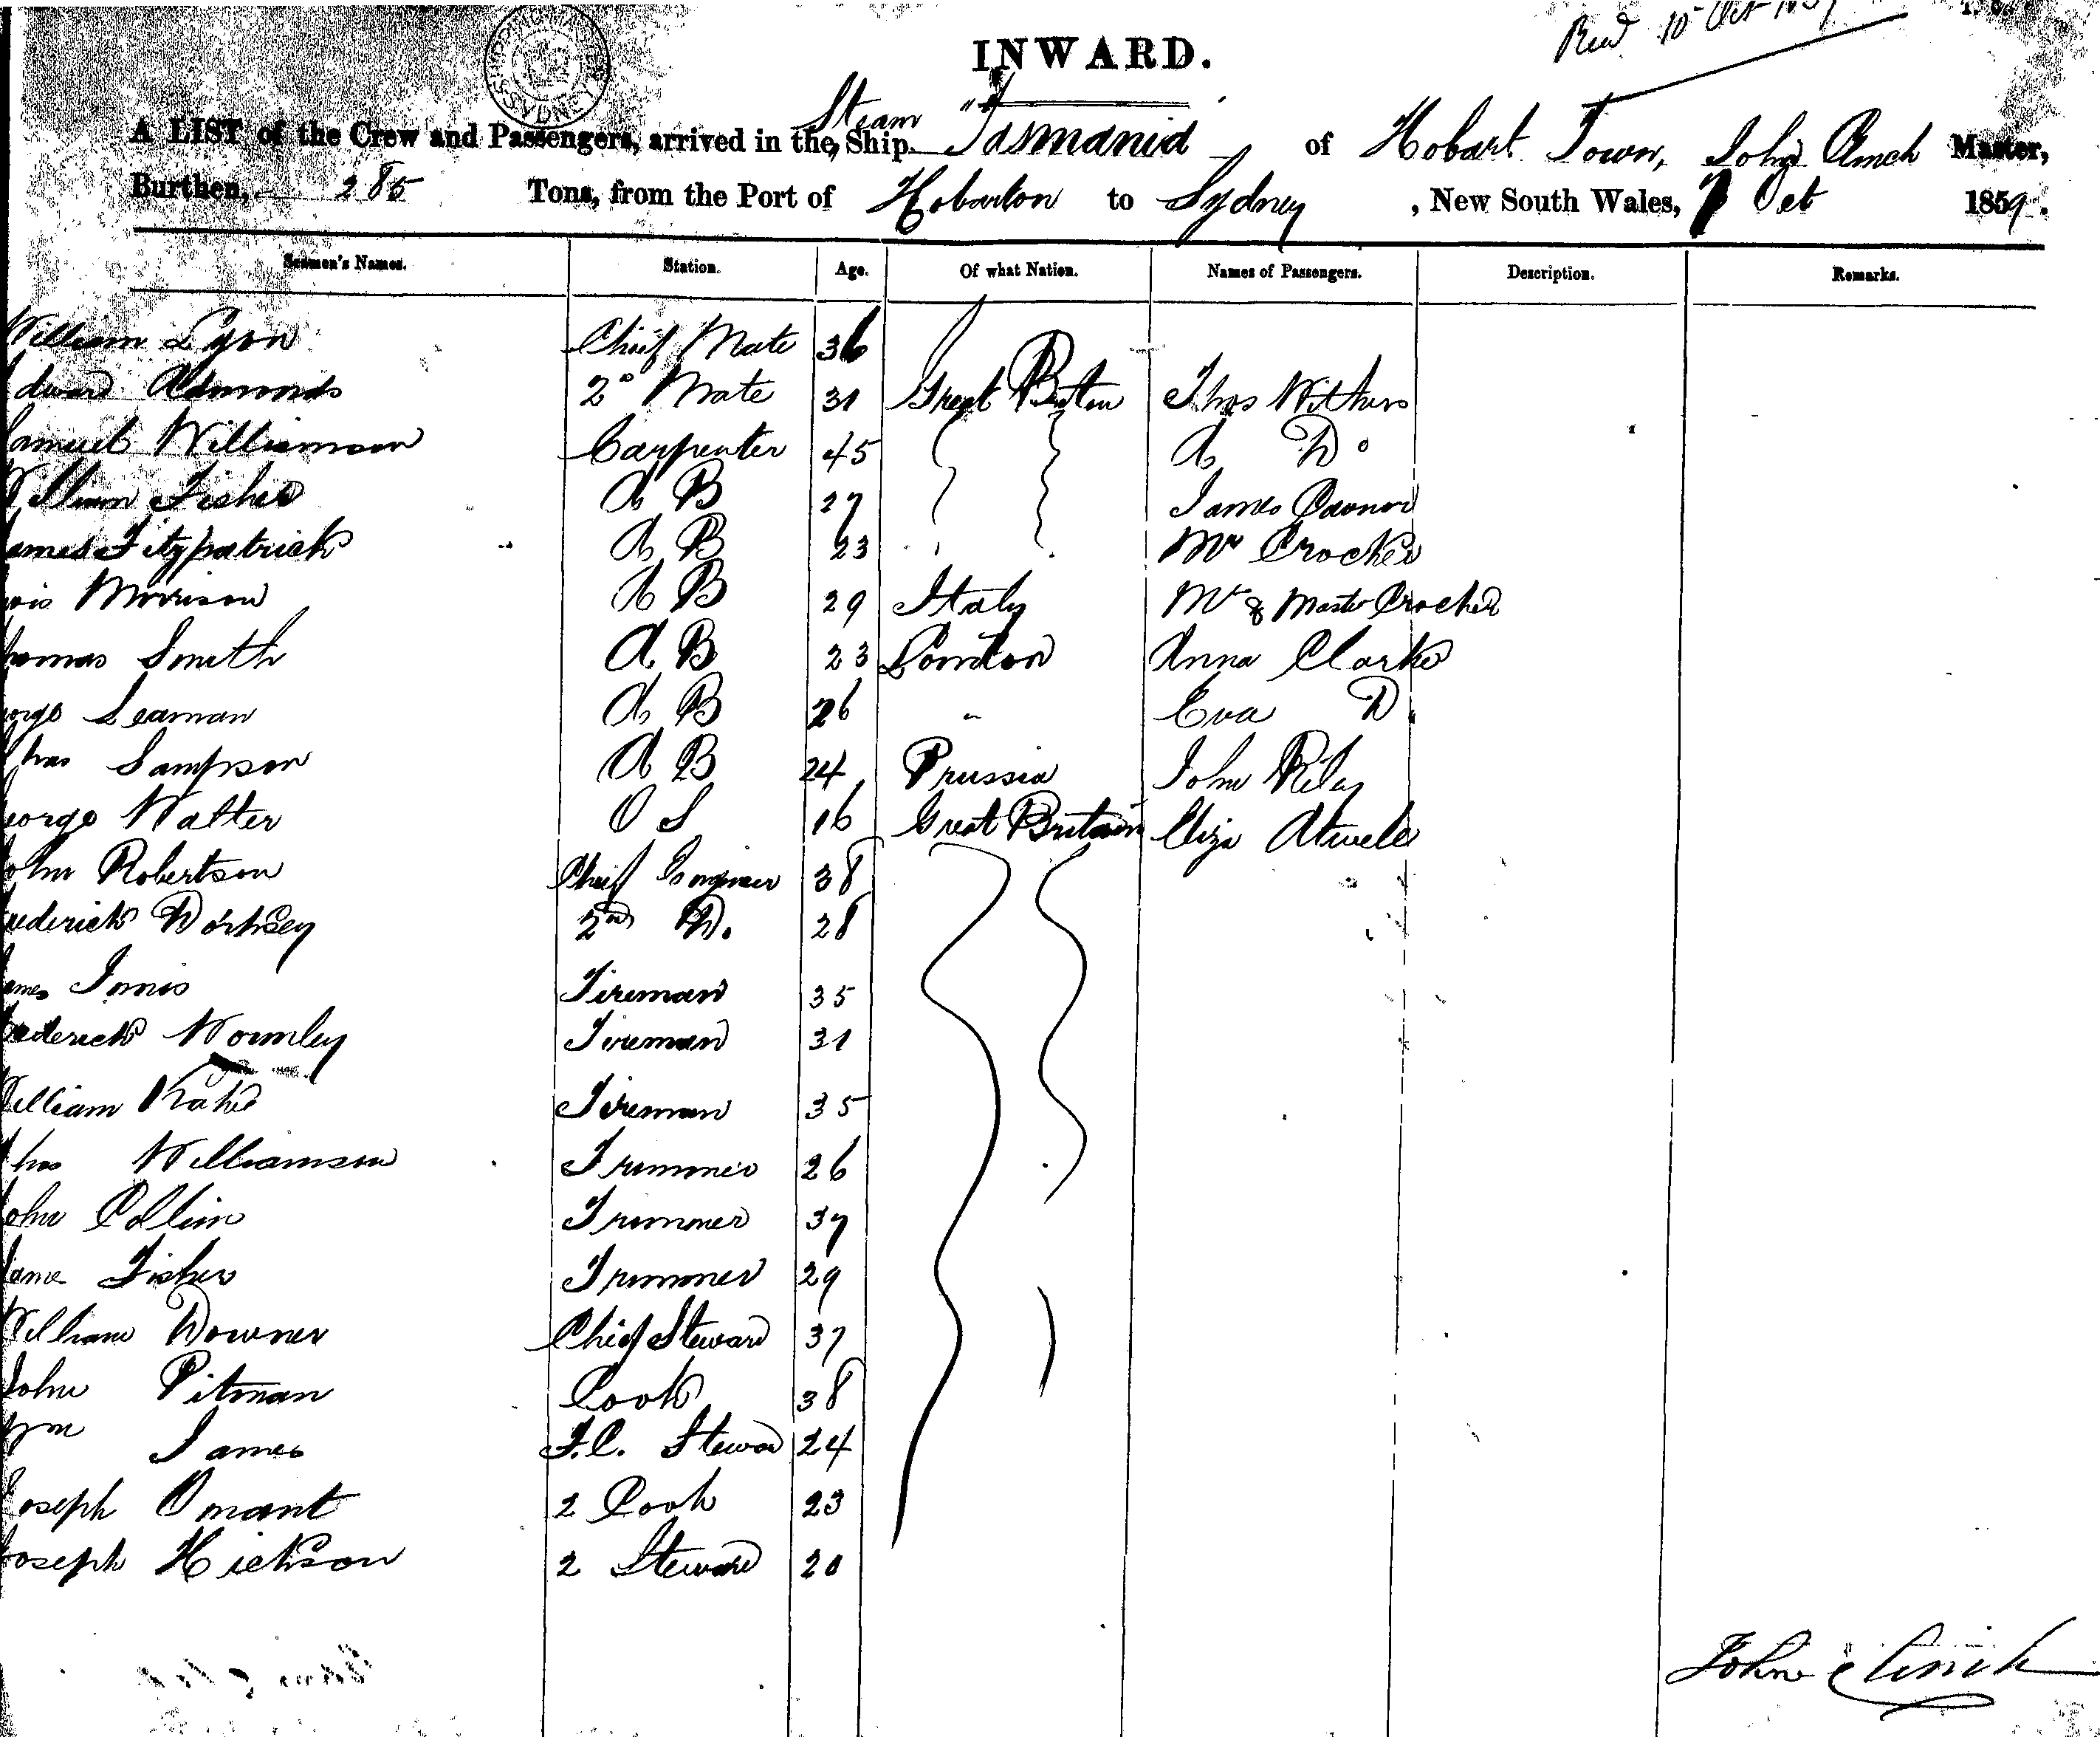 Recd 10 Oct 1859
SHIPPING MASTER SYDNEY
INWARD.
A LIST of the Crew and Passengers, arrived in the Steam Ship "Tasmania of Hobart Town, John Clinch Master,
Burthen, 285 Tons, from the Port of Hobarton to Sydney, New South Wales, 7 Oct 1859.
Seamen's Names. Station. Age. Of what Nation. Names of Passengers. Description. Remarks.
William Lyon Chief Mate 36
Edward Edmonds 2d Mate 31 Great Britain Thos Withers
Samuel Williamson Carpenter 45 A Do
William Fisher A B 27 James Connor
James Fitzpatrick A B 23 Mr Crocker
Morrison A B 29 Italy Mr & Master Crocker
Thomas Smith A B 23 London Anna Clarke
George Seaman A B 26 " Eva D
Thos Sampson A B 24 Prussia John Riley
George Walter O S 16 Great Britain Eliza Atwell
John Robertson Chief Engineer 38
Frederick 2nd D. 28
James Innis Fireman 35
Frederick Wormley Fireman 31
William Fireman 35
Thos Williamson Trimmer 26
John Collin Trimmer 37
Jame Fisher Trimmer 29
William Downer Chief Steward 37
John Pitman Cook 38
Wm James F.C. Steward 24
Joseph Omant 2 Cook 23
Joseph Hickson 2 Steward 20
John Clinch